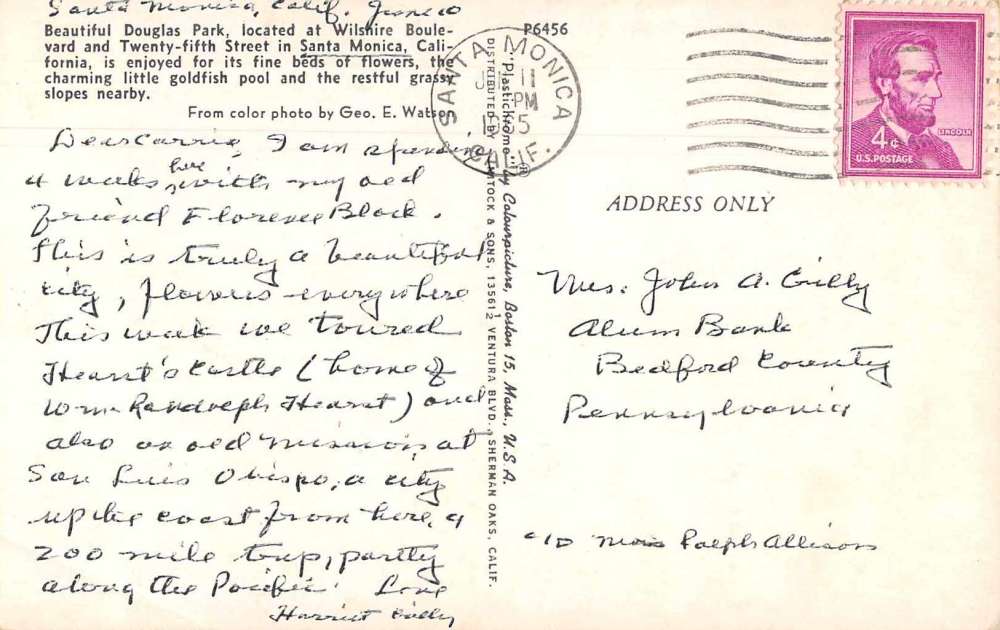 Santa Monica, Calif. June 10
Beautiful Douglas Park, located at Wilshire Boule-
vard and Twenty-fifth Street in Santa Monica, Cali-
fornia, is enjoyed for its fine beds of flowers, the
charming little goldfish pool and the restful grassy
slopes nearby.
From color photo by Geo. E. Watson
Dear Carrie, I am spending
4 weeks here with my old
friend Florence Black.
This is truly a beautiful
city, flowers everywhere
This week we toured
Hearst's Castle (home of
Wm Randolph Hearst) and
also an old mission, at
San Luis Obispo, a city
up the coast from here, a
200 mile trip, partly
along the Pacific. Love
Harriet Gilly
P6456
"Plastichrome"® by Colourpicture, Boston 15, Mass., U.S.A.
DISTRIBUTED BY MITOCK & SONS, 13561½ VENTURA BLVD., SHERMAN OAKS, CALIF.
SANTA MONICA
11
PM
CALIF.
4¢
LINCOLN
U.S. POSTAGE
ADDRESS ONLY
Mrs. John A. Gilly
Alum Bank
Bedford County
Pennsylvania
Ralph Allison